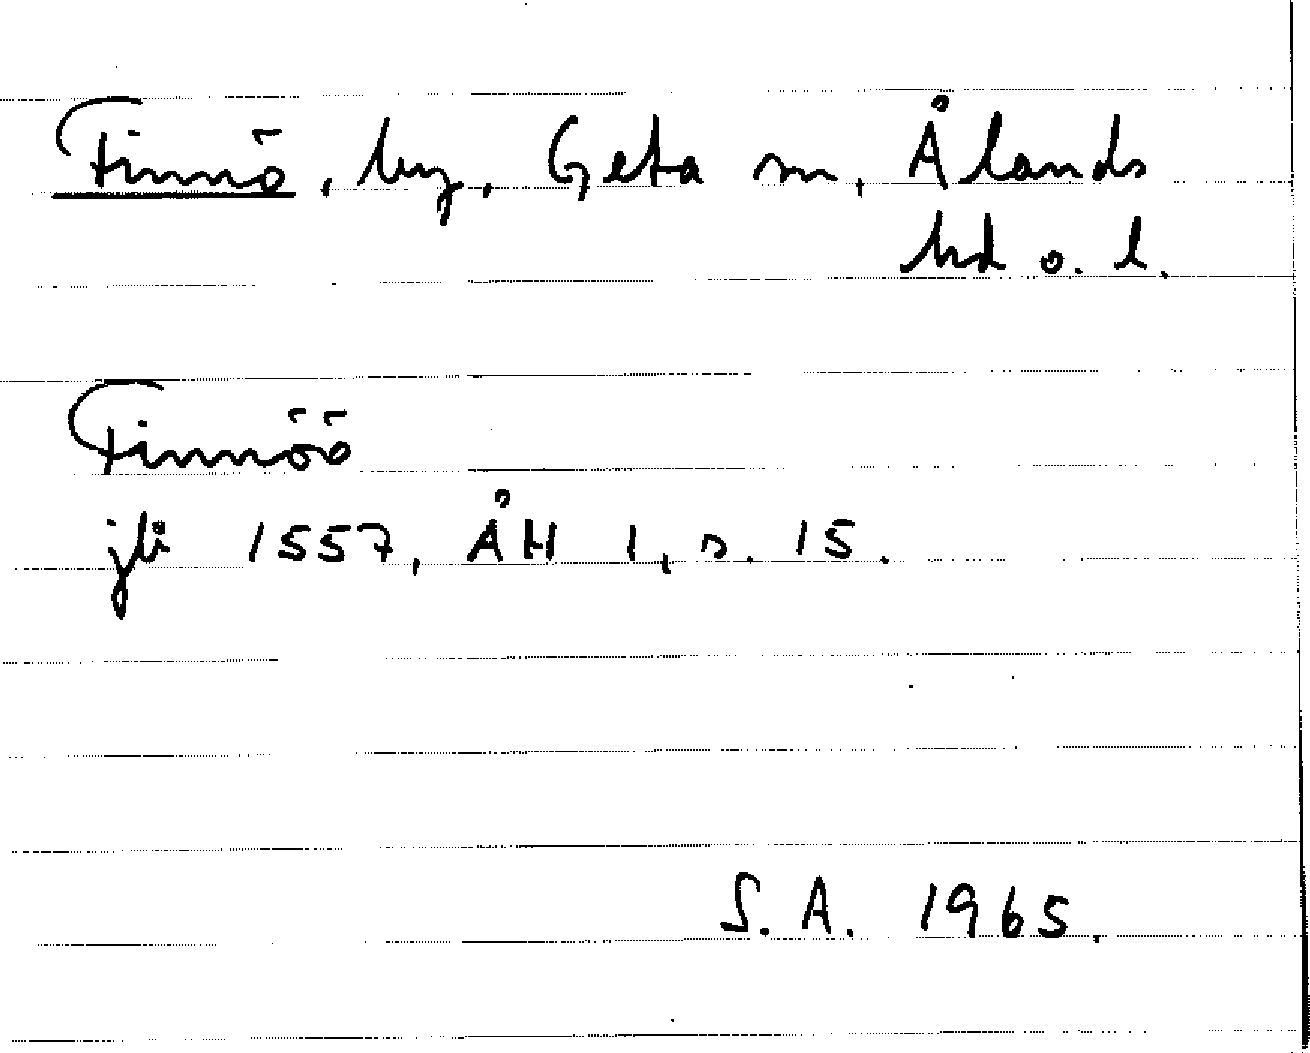 Finnö, by, Geta sn, Ålands
hd o. l.
Finnöö
jb 1557, ÅH 1, s. 15.
S.A. 1965.